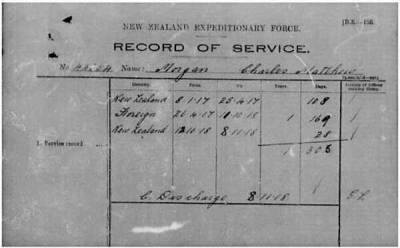 NEW ZEALAND EXPEDITIONARY FORCE. [D.R.—156.
RECORD OF SERVICE.
No. Name: Morgan Charles Matthew
Years. Days.
New Zealand 8.1.17 25.4.17 108
Foreign 26.4.17 10.10.18 1 169
New Zealand 8.11.18 28
1. Service record
1 305
C. Discharge 8.11.18